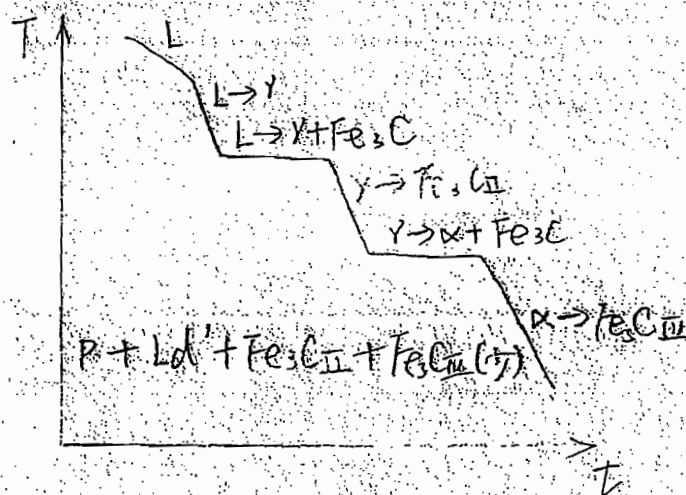 T
L
L→γ
L→γ+Fe₃C
γ→Fe₃CⅡ
γ→α+Fe₃C
α→Fe₃CⅢ
P+Ld'+Fe₃CⅡ+Fe₃CⅢ(少)
t